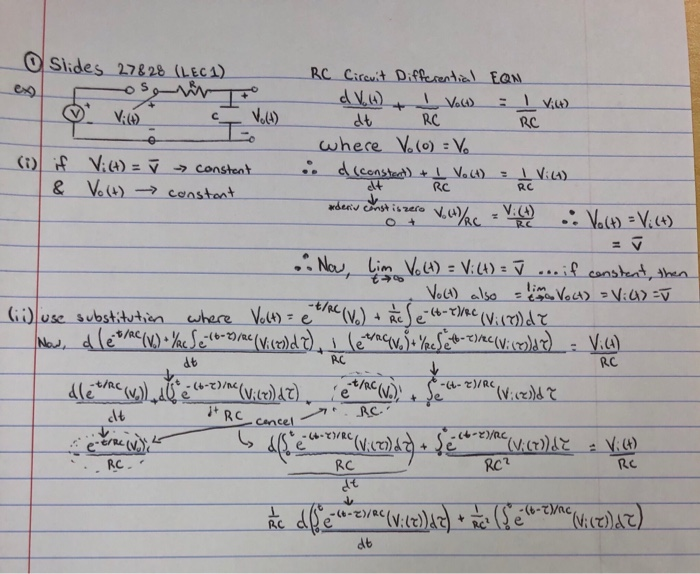 ① Slides 27&28 (LEC1)
RC Circuit Differential EQN
ex)
S R
V + Vi(t) + - C + Vo(t) -
dVo(t)/dt + 1/RC Vo(t) = 1/RC Vi(t)
where Vo(0) = Vo
(i) if Vi(t) = V̄ → constant
& Vo(t) → constant
∴ d(constant)/dt + 1/RC Vo(t) = 1/RC Vi(t)
*deriv const is zero
0 + Vo(t)/RC = Vi(t)/RC ∴ Vo(t) = Vi(t)
= V̄
∴ Now, lim t→∞ Vo(t) = Vi(t) = V̄ ... if constant, then
Vo(t) also = lim t→∞ Vo(t) = Vi(t) = V̄
(ii) use substitution where Vo(t) = e^-t/RC (Vo) + 1/RC ∫e^-(t-τ)/RC (Vi(τ))dτ
Now, d(e^-t/RC (Vo) + 1/RC ∫e^-(t-τ)/RC (Vi(τ))dτ)/dt + 1/RC (e^-t/RC (Vo) + 1/RC ∫e^-(t-τ)/RC (Vi(τ))dτ) = Vi(t)/RC
d(e^-t/RC (Vo))/dt + d(∫₀^t e^-(t-τ)/RC (Vi(τ))dτ)/dt RC + e^-t/RC (Vo)/RC + ∫₀^t e^-(t-τ)/RC (Vi(τ))dτ
cancel
e^-t/RC (Vo)/RC
d(∫₀^t e^-(t-τ)/RC (Vi(τ))dτ)/RC /dt + ∫₀^t e^-(t-τ)/RC (Vi(τ))dτ/RC² = Vi(t)/RC
1/RC d(∫₀^t e^-(t-τ)/RC (Vi(τ))dτ)/dt + 1/RC² (∫₀^t e^-(t-τ)/RC (Vi(τ))dτ)